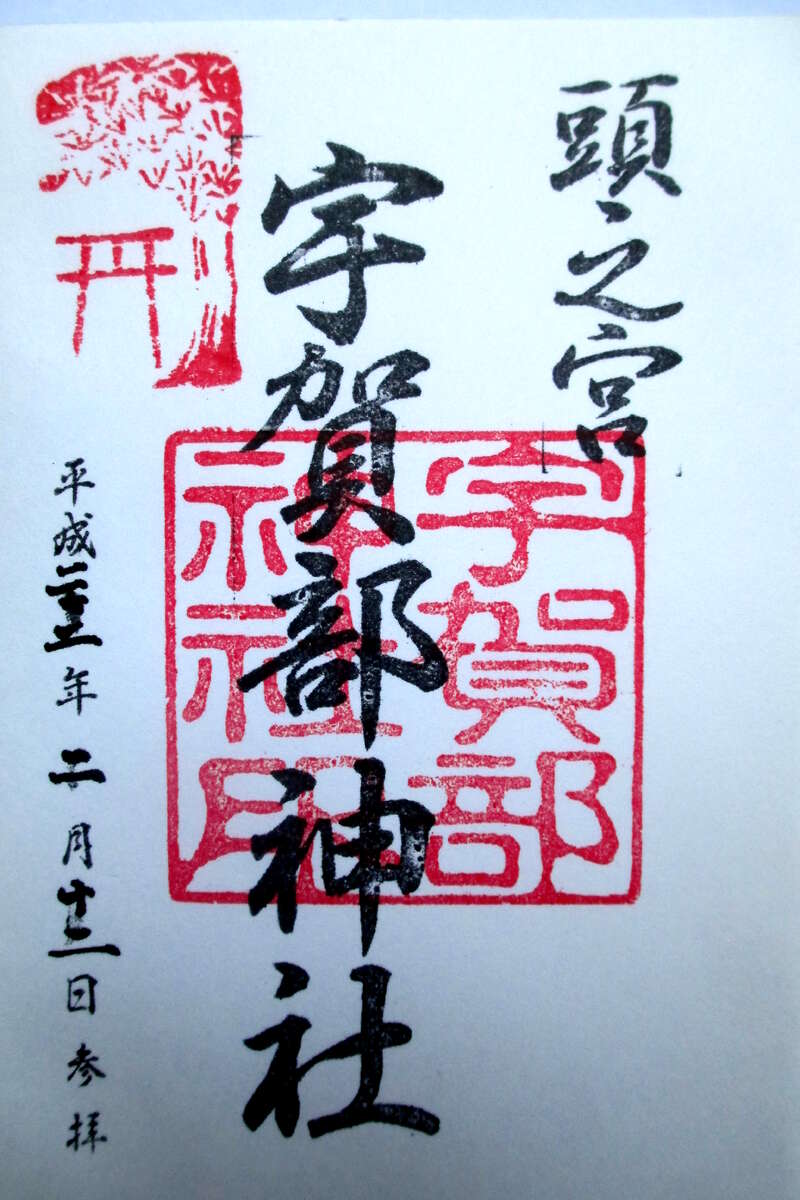 頭之宮
宇賀部神社
宇賀部
神社印
平成二十三年二月十二日参拝